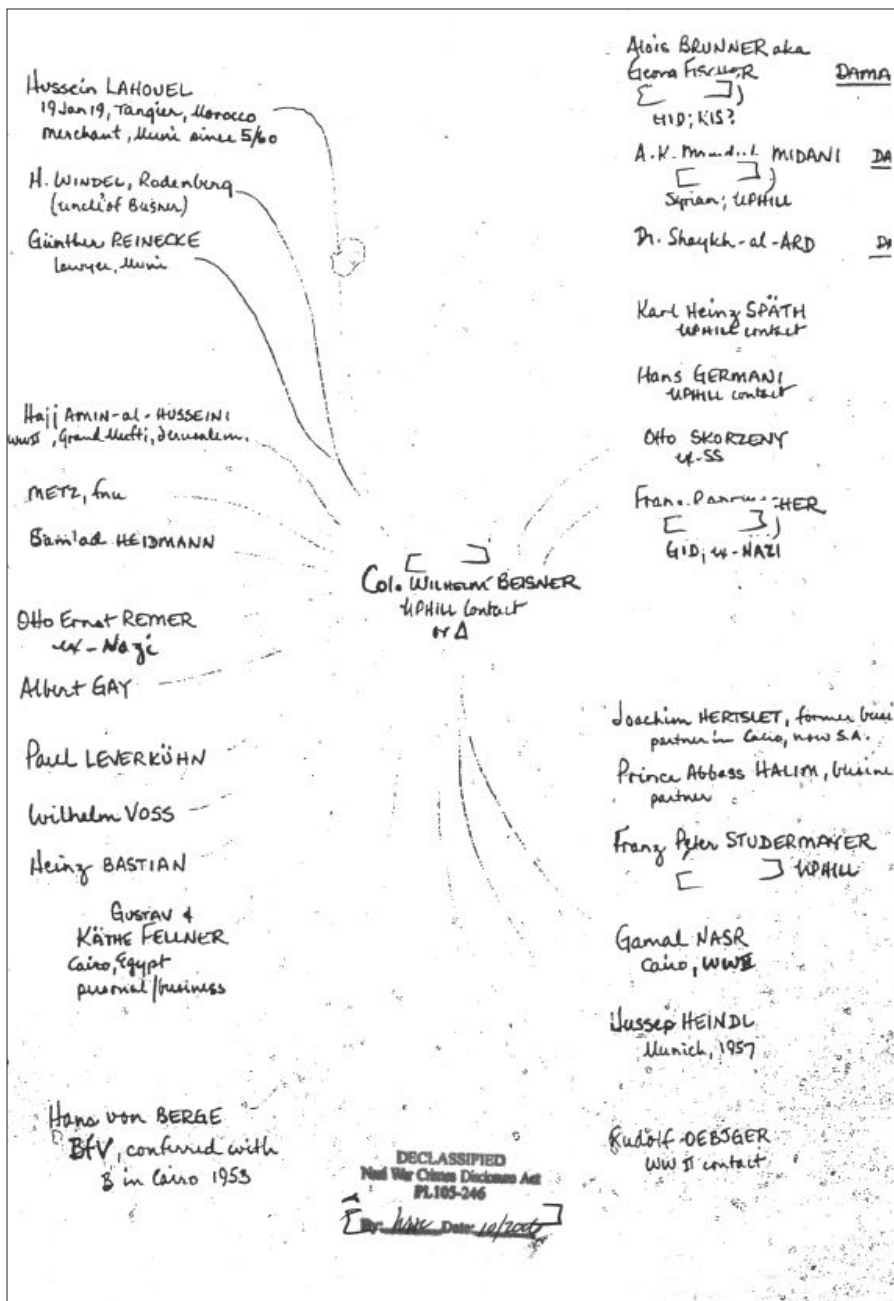 Hussein LAHOUEL
19 Jan 19, Tangier, Morocco
merchant, Muni since 5/60
H. WINDEL, Rodenberg
(uncle of Beisner)
Günther REINECKE
lawyer, Muni
Hajj AMIN-al-HUSSEINI
WWII, Grand Mufti, Jerusalem.
METZ, fnu
HEIDMANN
Otto Ernst REMER
ex-Nazi
Albert GAY
Paul LEVERKÜHN
Wilhelm VOSS
Heinz BASTIAN
GUSTAV &
KÄTHE FELLNER
Cairo, Egypt
personal/business
Hans von BERGE
BfV, conferred with
B in Cairo 1953
Col. WILHELM BEISNER
UPHILL Contact
or Δ
DECLASSIFIED
Nazi War Crimes Disclosure Act
PL105-246
By: Date: 10/200
Alois BRUNNER aka
Georg
DAMA
GID; KIS?
A.K. MIDANI
DA
Syrian; UPHILL
Dr. Shaykh-al-ARD
Karl Heinz SPÄTH
UPHILL contact
Hans GERMANI
UPHILL contact
Otto SKORZENY
ex-SS
HER
GID; ex-NAZI
Joachim HERTSLET, former busi
partner in Cairo, now S.A.
Prince Abbass HALIM, busine
partner
Franz Peter STUDERMAYER
UPHILL
Gamal NASR
Cairo, WWII
Jussep HEINDL
Munich, 1957
Rudolf
WW II contact